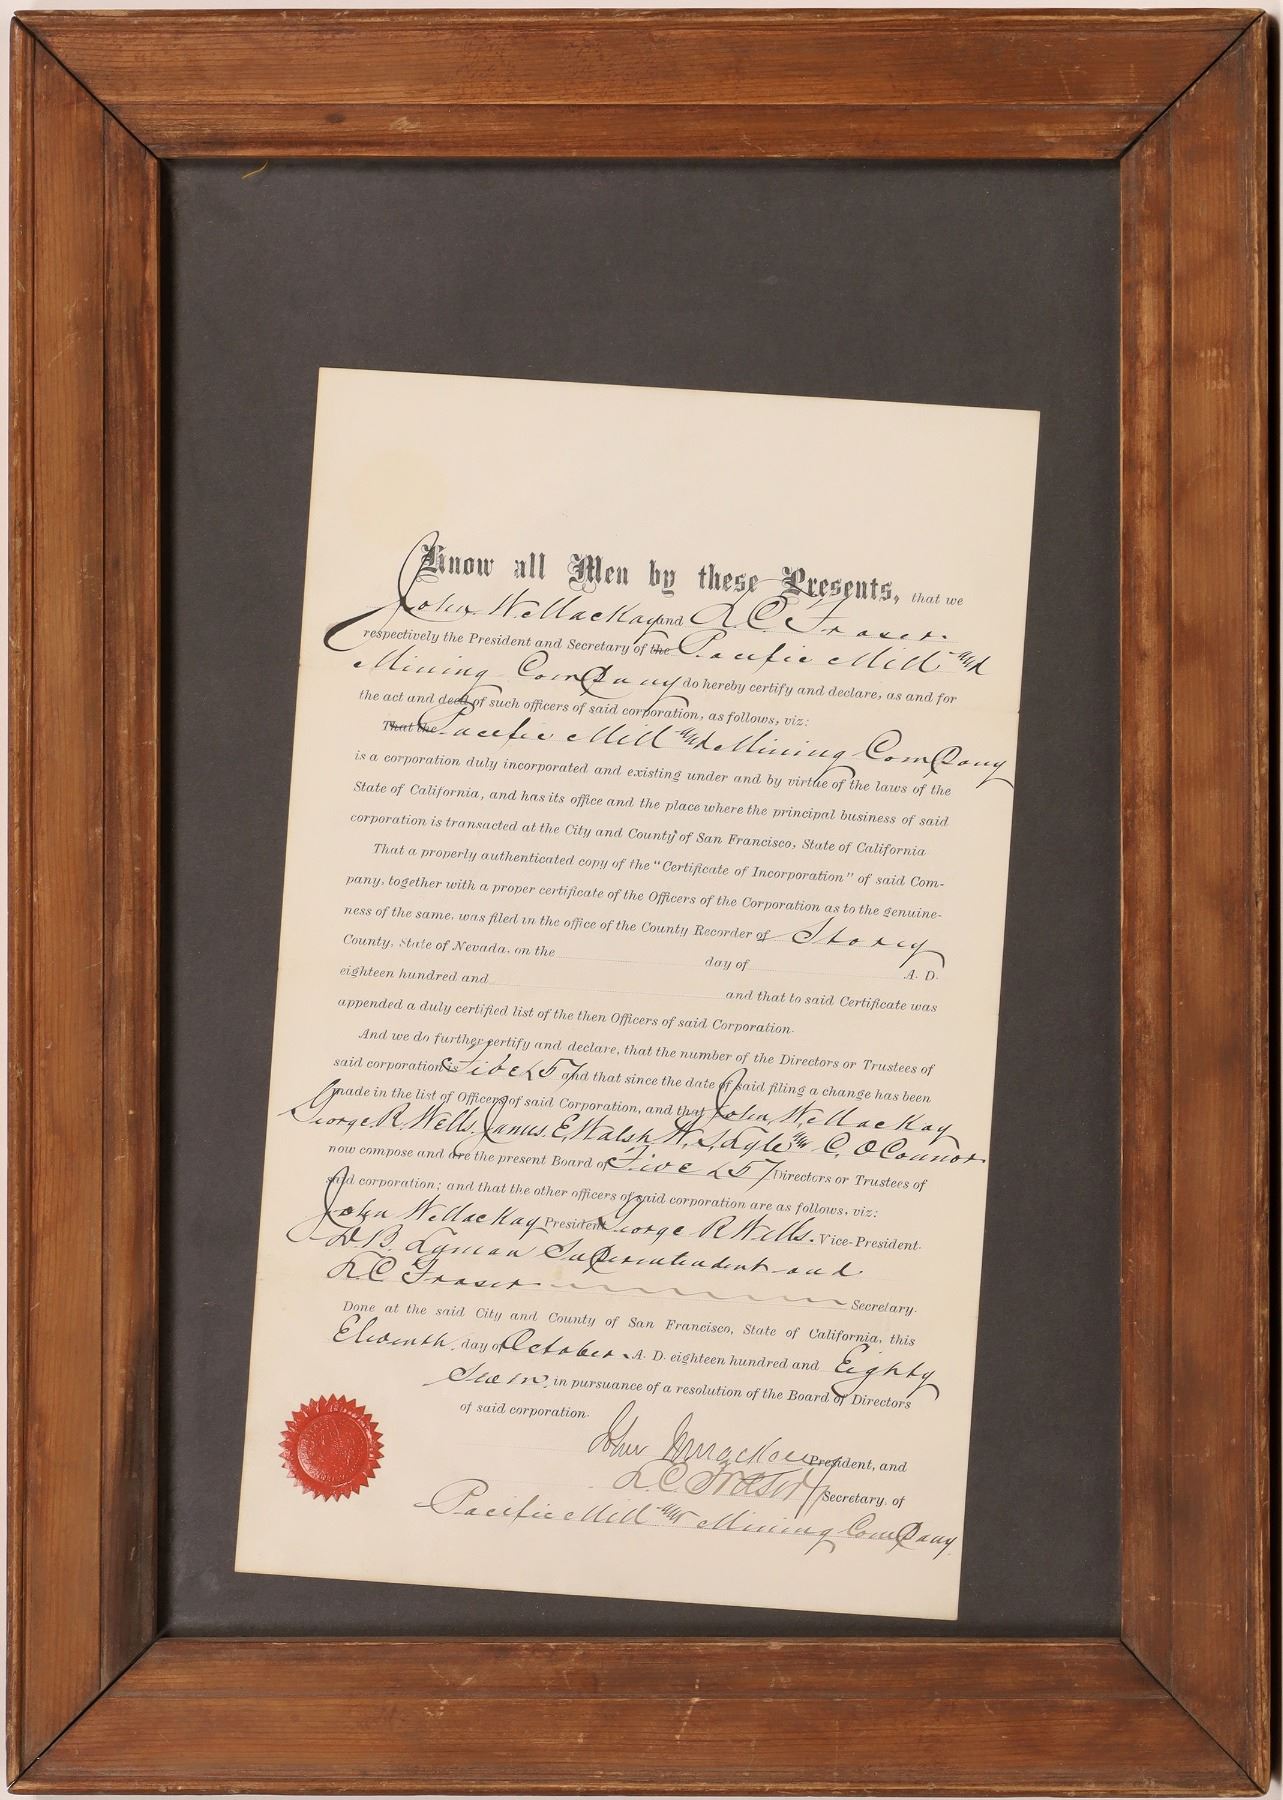 Know all Men by these Presents, that we
John W. Mackay and A. C. Fraser
respectively the President and Secretary of the Pacific Mill and
Mining Company do hereby certify and declare, as and for
the act and deed of such officers of said corporation, as follows, viz:
That the Pacific Mill and Mining Company
is a corporation duly incorporated and existing under and by virtue of the laws of the
State of California, and has its office and the place where the principal business of said
corporation is transacted at the City and County of San Francisco, State of California
That a properly authenticated copy of the "Certificate of Incorporation" of said Com-
pany, together with a proper certificate of the Officers of the Corporation as to the genuine-
ness of the same, was filed in the office of the County Recorder of Storey
County, State of Nevada, on the day of A. D.
eighteen hundred and and that to said Certificate was
appended a duly certified list of the then Officers of said Corporation.
And we do further certify and declare, that the number of the Directors or Trustees of
said corporation is Five (5) and that since the date of said filing a change has been
made in the list of Officers of said Corporation, and that John W. Mackay
George R. Wells, James. E. Walsh W. S. Lyle and C. O Connor
now compose and are the present Board of Five (5) Directors or Trustees of
said corporation; and that the other officers of said corporation are as follows, viz:
John W. Mackay President George R Wells. Vice-President.
D. B. Lyman Superintendent and
A. C Fraser Secretary.
Done at the said City and County of San Francisco, State of California, this
Eleventh. day of October. A. D. eighteen hundred and Eighty
Seven, in pursuance of a resolution of the Board of Directors
of said corporation.
John W Mackay President, and
A. C Fraser Secretary of
Pacific Mill and Mining Company